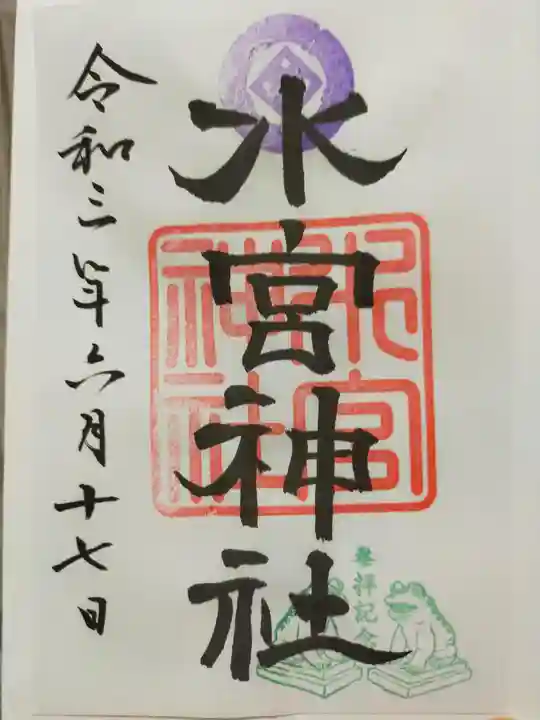 水宮神社
令和三年六月十七日
参拝記念